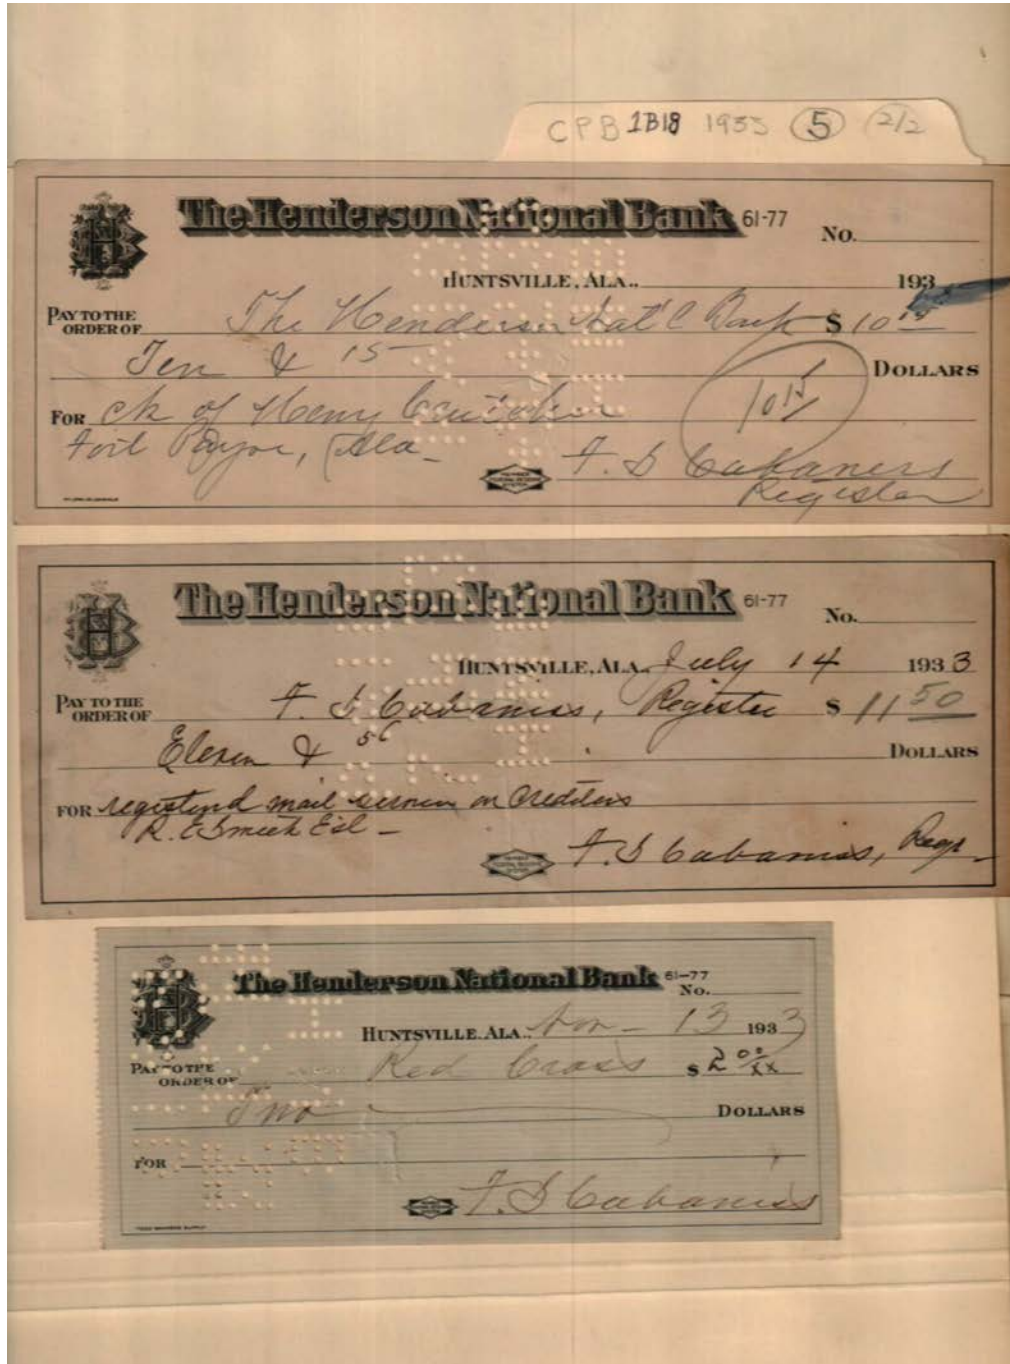 CPB 1B18 1933 5 2/2
The Henderson National Bank 61-77
No.
HUNTSVILLE, ALA., 193
PAY TO THE ORDER OF The Henderson Nat'l Bank $ 10 15
Ten & 15 DOLLARS
10 15
FOR ck of Henry
Fort Payne, Ala
F. D Cabaniss
Register
The Henderson National Bank 61-77
No.
HUNTSVILLE, ALA. July 14 1933
PAY TO THE ORDER OF F. D Cabaniss, Register $ 11 50
Eleven & 50 DOLLARS
FOR registered mail on Creditors
R. E Smith Est
F. D Cabaniss, Regr
The Henderson National Bank 61-77
No.
HUNTSVILLE, ALA., Nov 13 1933
PAY TO THE ORDER OF Red Cross $ 2 00/xx
Two DOLLARS
FOR
F. D Cabaniss